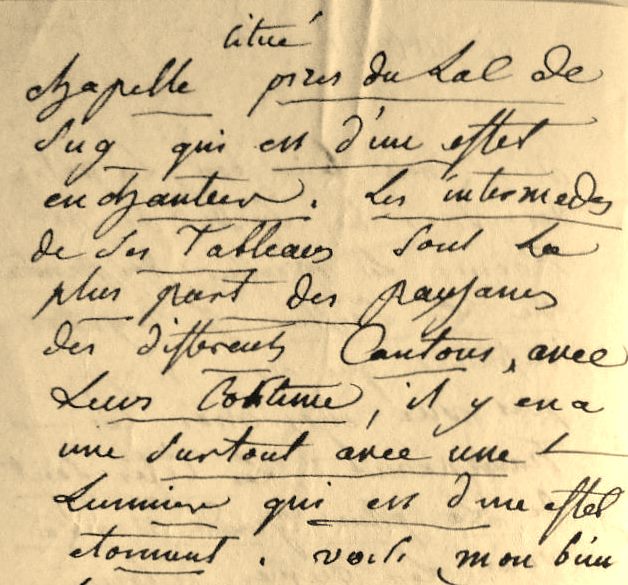 citué
chapelle pres du Lac de
Sug qui est d'un effet
enchanteur. Les intermedes
de Ses Tableaux Sont La
plus part des paysans
des differents Cantons, avec
Leurs Costume, il y en a
une Surtout avec une
Lumiere qui est d'une effet
etonnent. voila mon bien